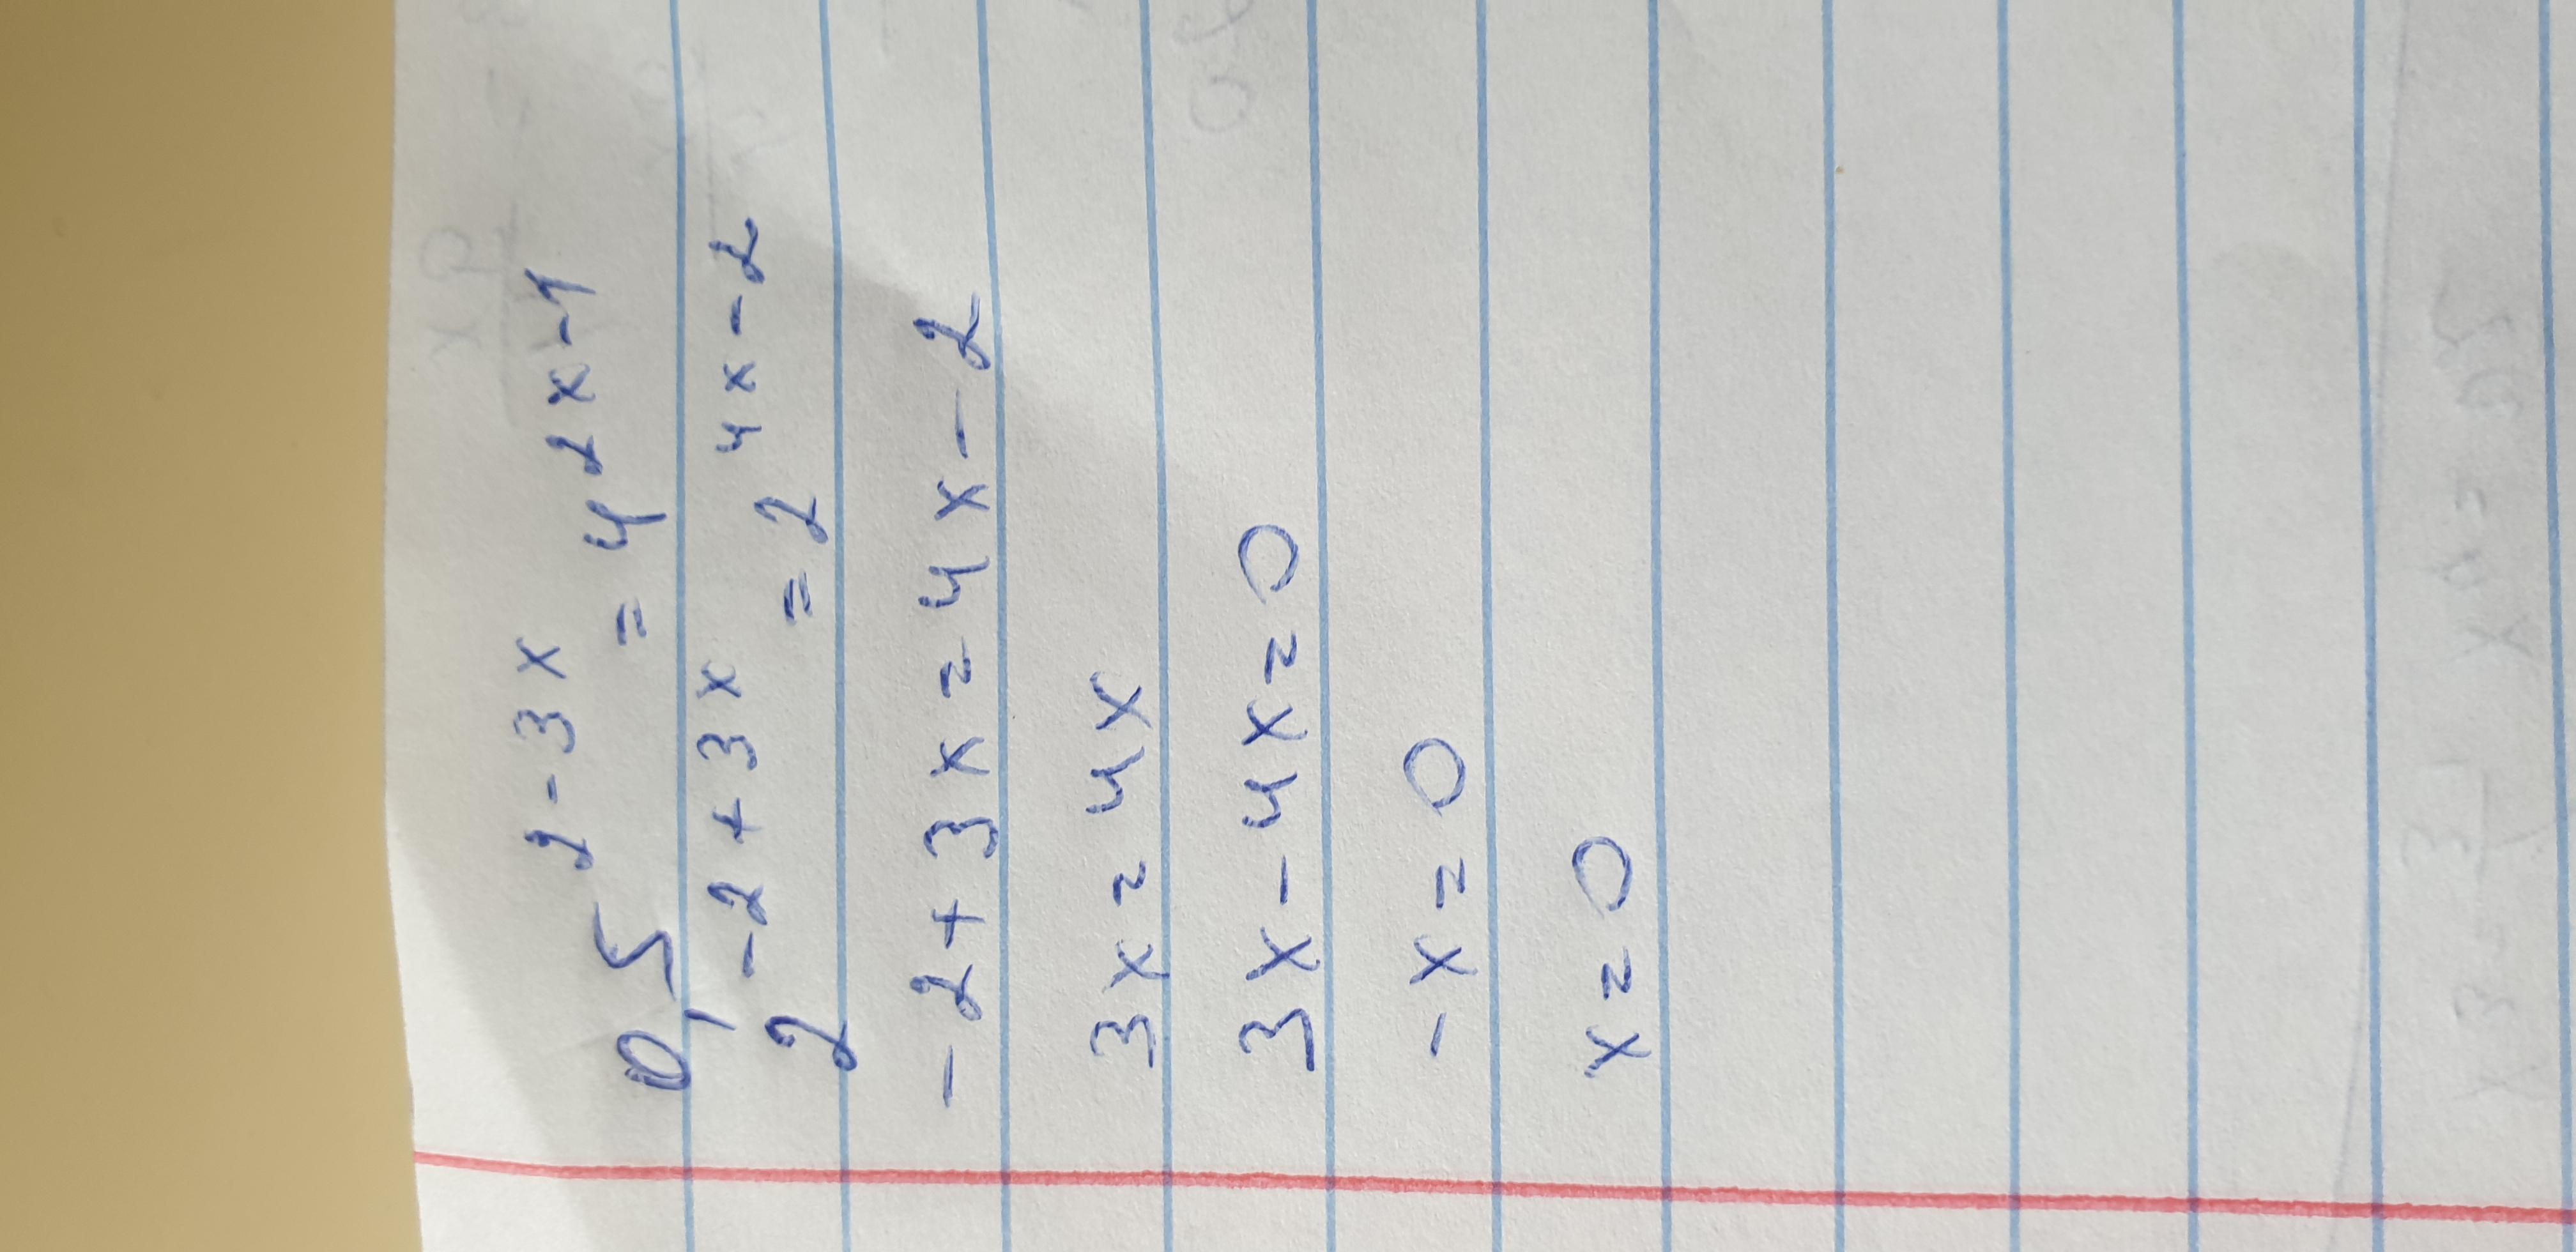 0,5^{2-3x} = 4^{2x-1}
2^{-2+3x} = 2^{4x-2}
-2+3x=4x-2
3x=4x
3x-4x=0
-x=0
x=0